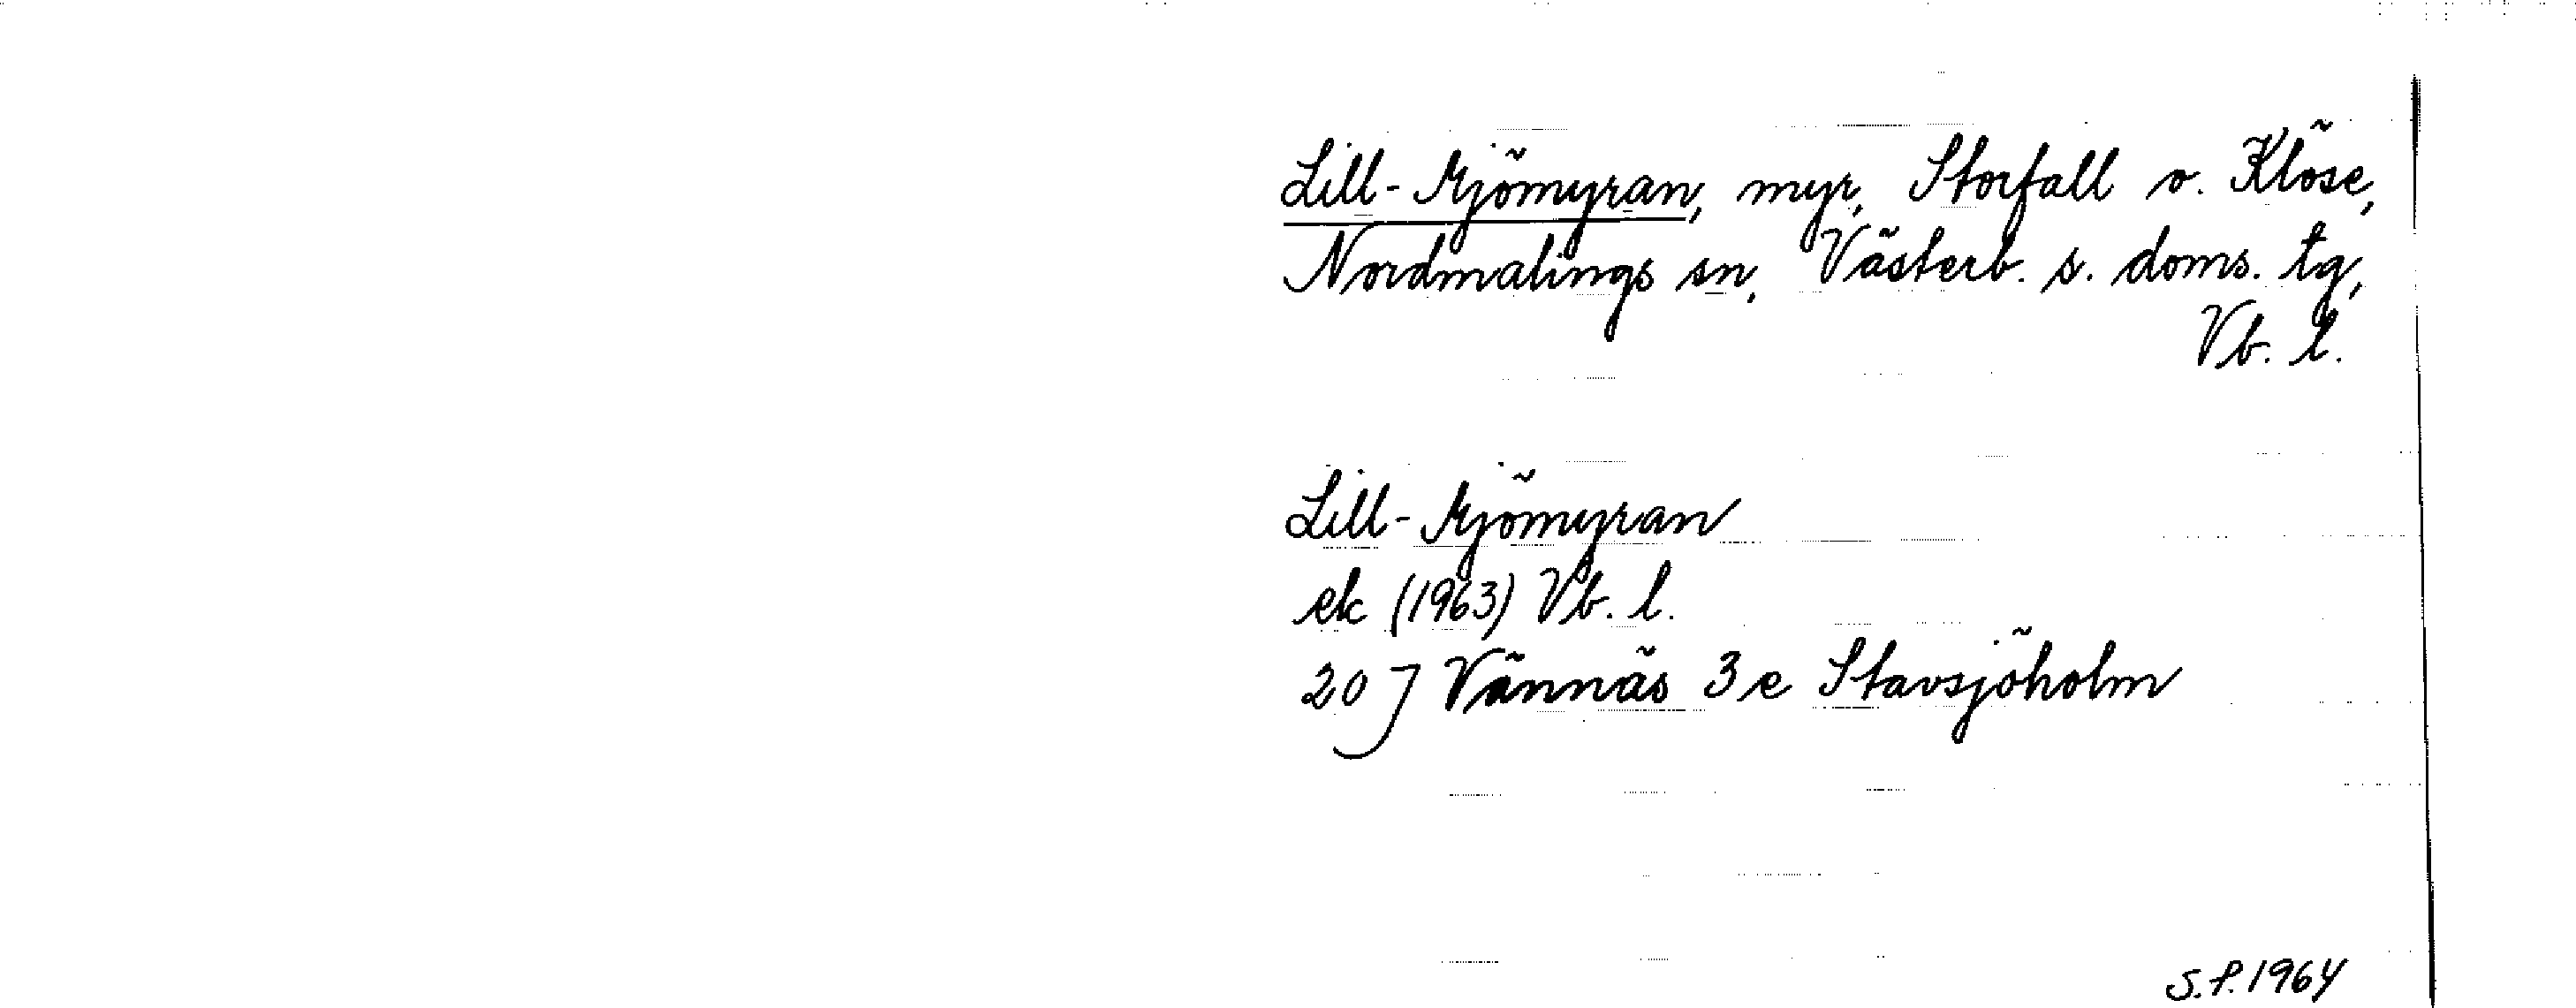 Lill-Mjömyran, myr, Storfall o. Klöse,
Nordmalings sn, Västerb. s. doms. tg,
Vb. l.
Lill-Mjömyran
ek (1963) Vb. l.
20 J Vännäs 3e Stavsjöholm
S.f. 1964